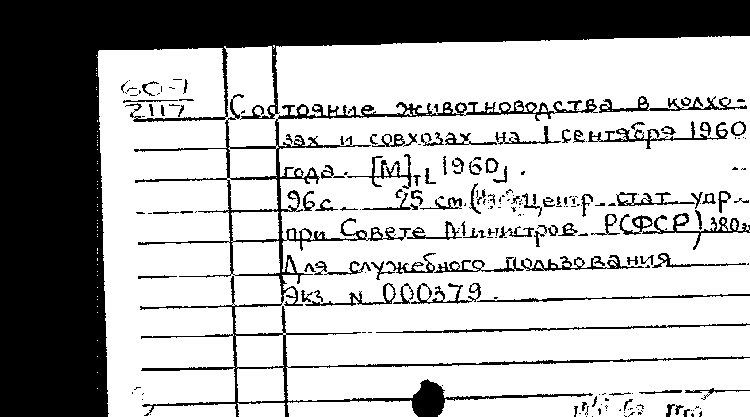 60-7
2117
Состояние животноводства в колхо-
зах и совхозах на 1 сентября 1960
года. [М], [1960].
96 с. 25 см. (Центр. стат. упр.
при Совете Министров РСФСР) 380 э
Для служебного пользования
Экз. N 000379.